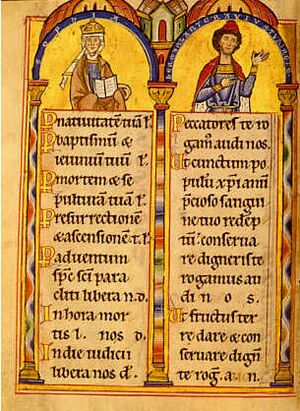 SOPHIA
Pnatiuitatē tuā l.
Pbaptismū &
ieiuniū tuū l.
Pmortem & se
pulturā tuā l.
Presurrectionē
& ascensionē t. l.
Paduentum
sp̄c sc̄i para
cliti libera n. d.
In hora mor
tis l. nos d.
In die iudicii
libera nos d.
Peccatores te ro
gam᷒ audi nos.
Ut cunctum po
pulū xp̄ianū
p̄cioso sangui
ne tuo redēp
tū: conserua
re digneris te
rogamus au
di nos.
Ut fructus ter
re dare & con
seruare dign̄
te rog. a. n.